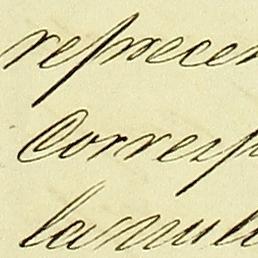 reprecen
Corresp
la mul